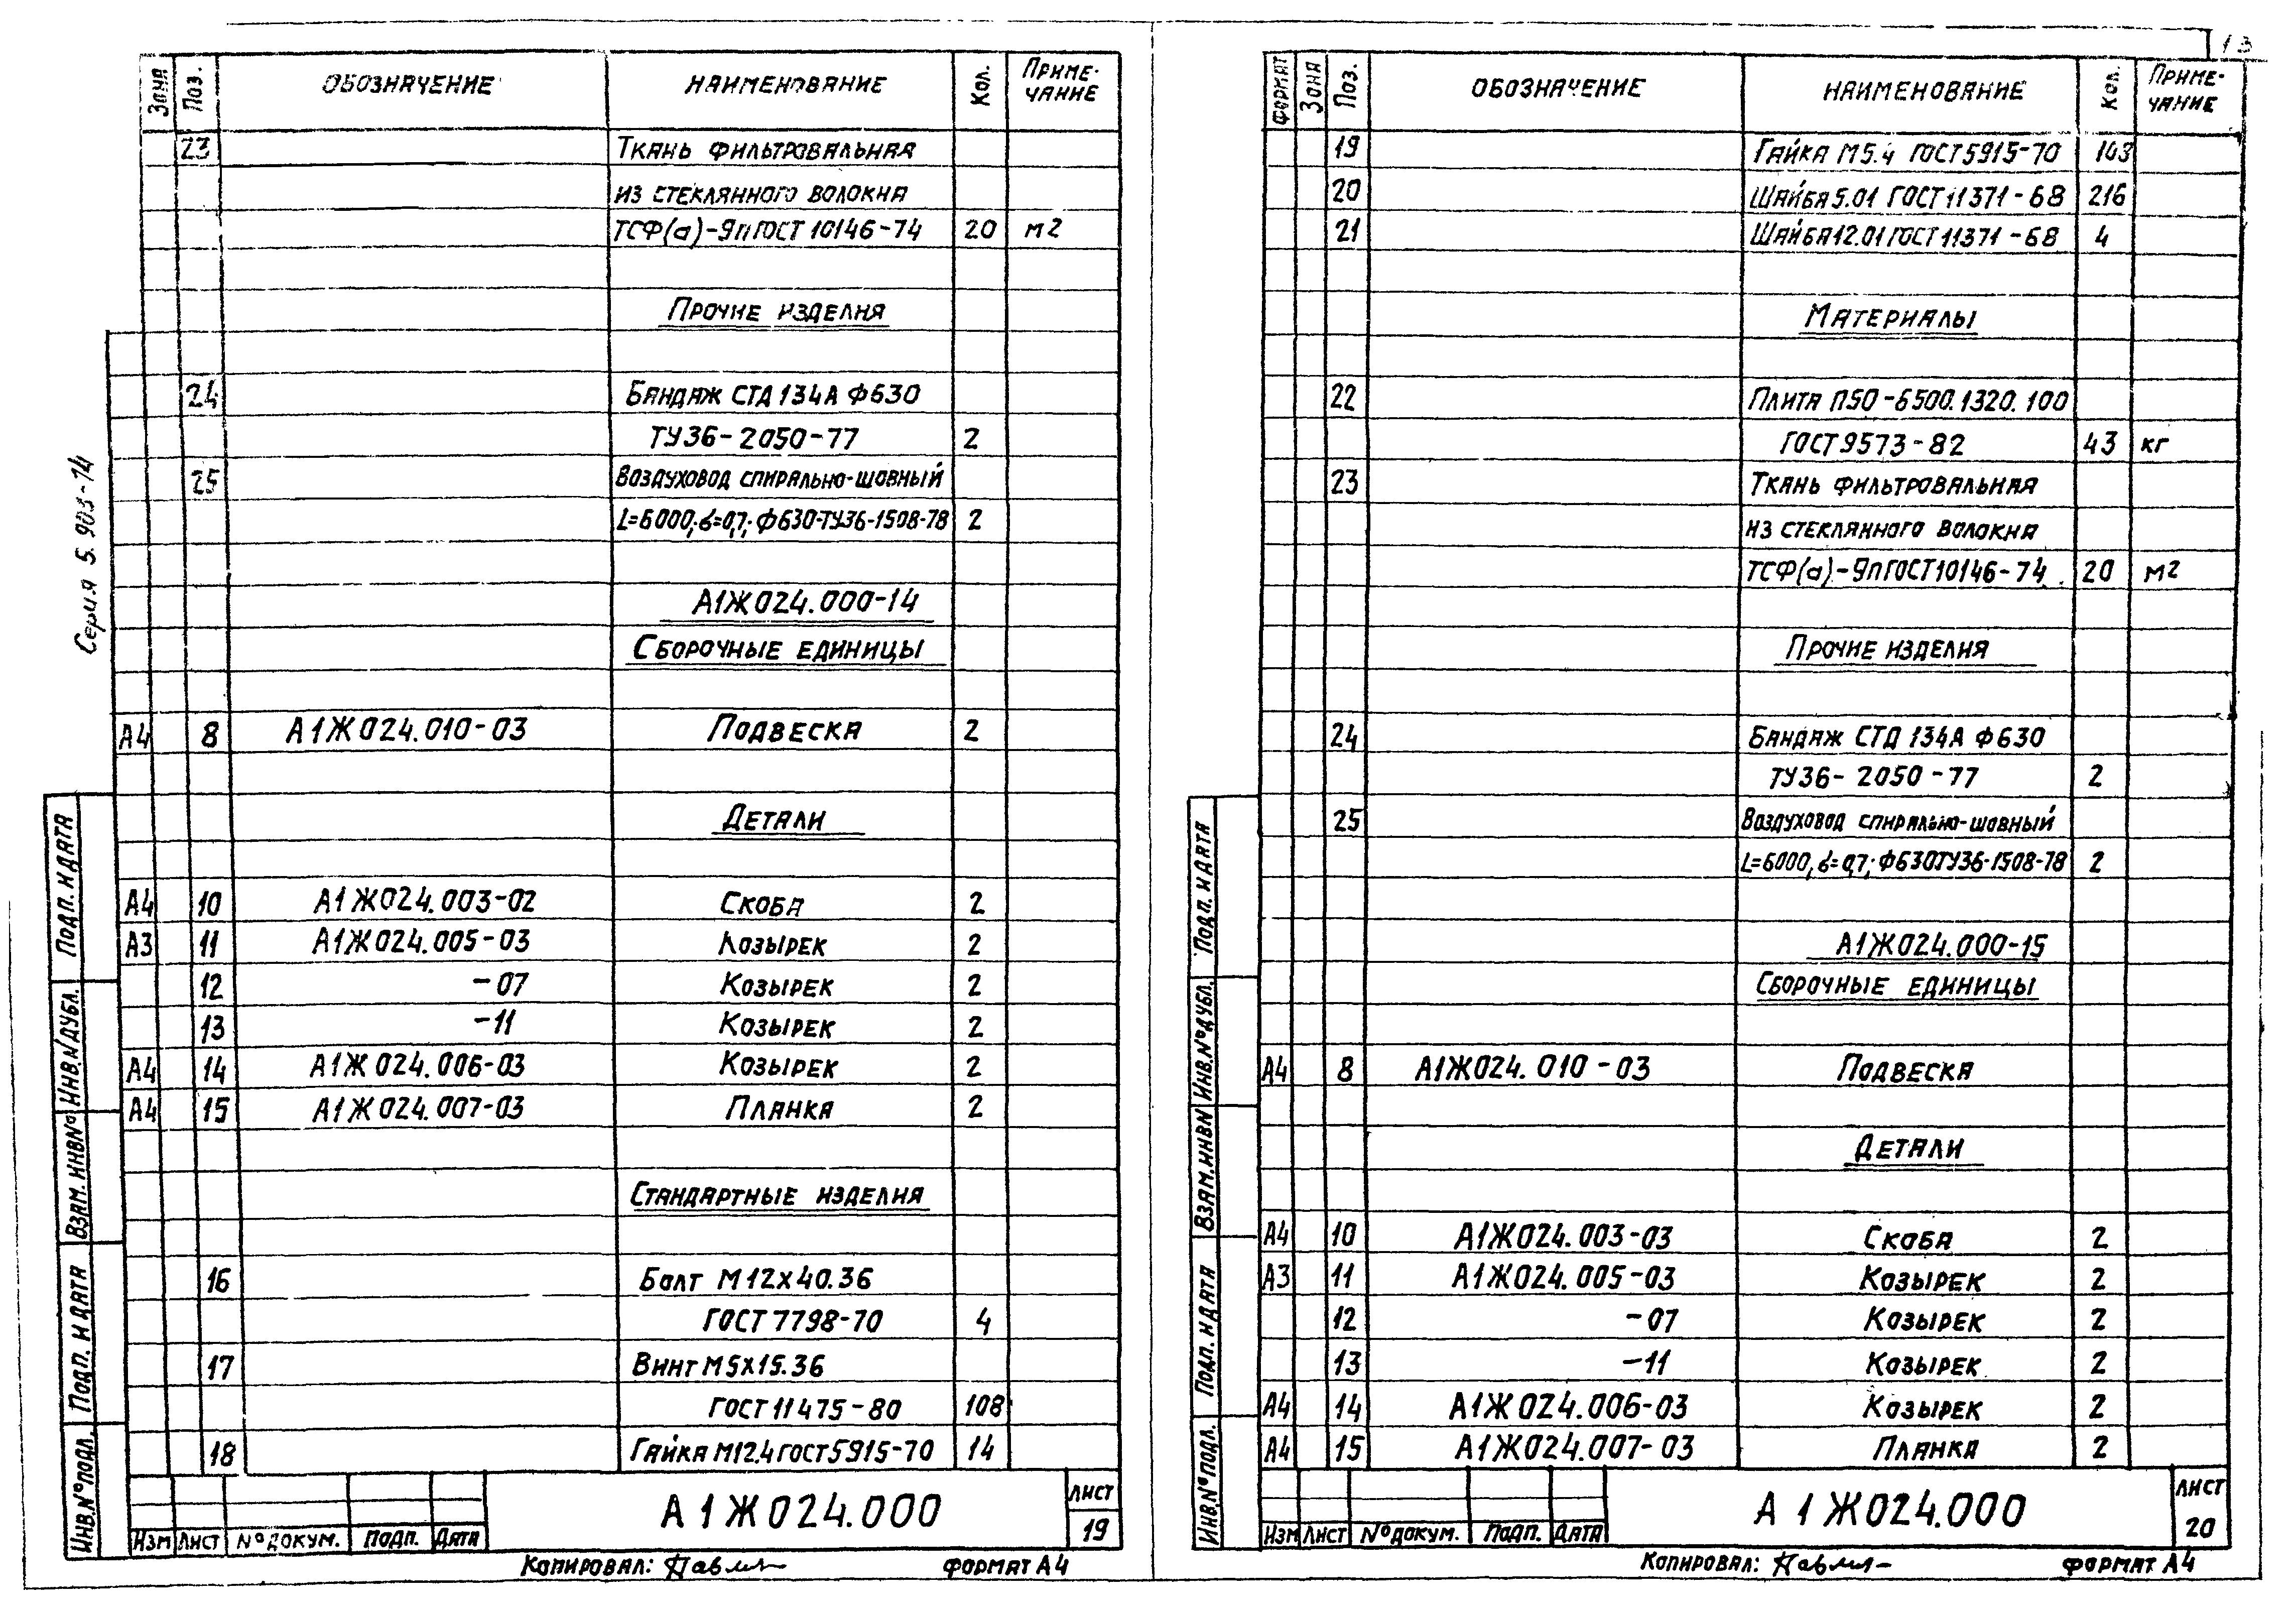 13
Серия 5.903-14
Зона Поз. Обозначение Наименование Кол. Примечание
23 Ткань фильтровальная
из стеклянного волокна
ТСФ(а)-9п ГОСТ 10146-74 20 м2
Прочие изделия
24 Бандаж СТД 134А Ф630
ТУ36-2050-77 2
25 Воздуховод спирально-шовный
L=6000; δ=0,7; Ф630-ТУ36-1508-78 2
А1Ж024.000-14
Сборочные единицы
А4 8 А1Ж024.010-03 Подвеска 2
Детали
А4 10 А1Ж024.003-02 Скоба 2
А3 11 А1Ж024.005-03 Козырек 2
12 -07 Козырек 2
13 -11 Козырек 2
А4 14 А1Ж024.006-03 Козырек 2
А4 15 А1Ж024.007-03 Планка 2
Стандартные изделия
16 Болт М12х40.36
ГОСТ 7798-70 4
17 Винт М5х15.36
ГОСТ 11475-80 108
18 Гайка М12.4 ГОСТ 5915-70 14
Инв.№ подл. Подп. и дата Взам. инв № Инв.№ дубл. Подп. и дата
Изм Лист № докум. Подп. Дата
А1Ж024.000
Лист
19
Копировал: Формат А4
Формат Зона Поз. Обозначение Наименование Кол. Примечание
19 Гайка М5.4 ГОСТ 5915-70
20 Шайба 5.01 ГОСТ 11371-68 216
21 Шайба 12.01 ГОСТ 11371-68 4
Материалы
22 Плита П50-6500.1320.100
ГОСТ 9573-82 43 кг
23 Ткань фильтровальная
из стеклянного волокна
ТСФ(а)-9п ГОСТ 10146-74 20 м2
Прочие изделия
24 Бандаж СТД 134А Ф630
ТУ36-2050-77 2
25 Воздуховод спирально-шовный
L=6000; δ=0,7; Ф630ТУ36-1508-78 2
А1Ж024.000-15
Сборочные единицы
А4 8 А1Ж024.010-03 Подвеска
Детали
А4 10 А1Ж024.003-03 Скоба 2
А3 11 А1Ж024.005-03 Козырек 2
12 -07 Козырек 2
13 -11 Козырек 2
А4 14 А1Ж024.006-03 Козырек 2
А4 15 А1Ж024.007-03 Планка 2
Инв.№ подл. Подп. и дата Взам. инв № Инв.№ дубл. Подп. и дата
Изм Лист № докум. Подп. Дата
А1Ж024.000
Лист
20
Копировал: Формат А4